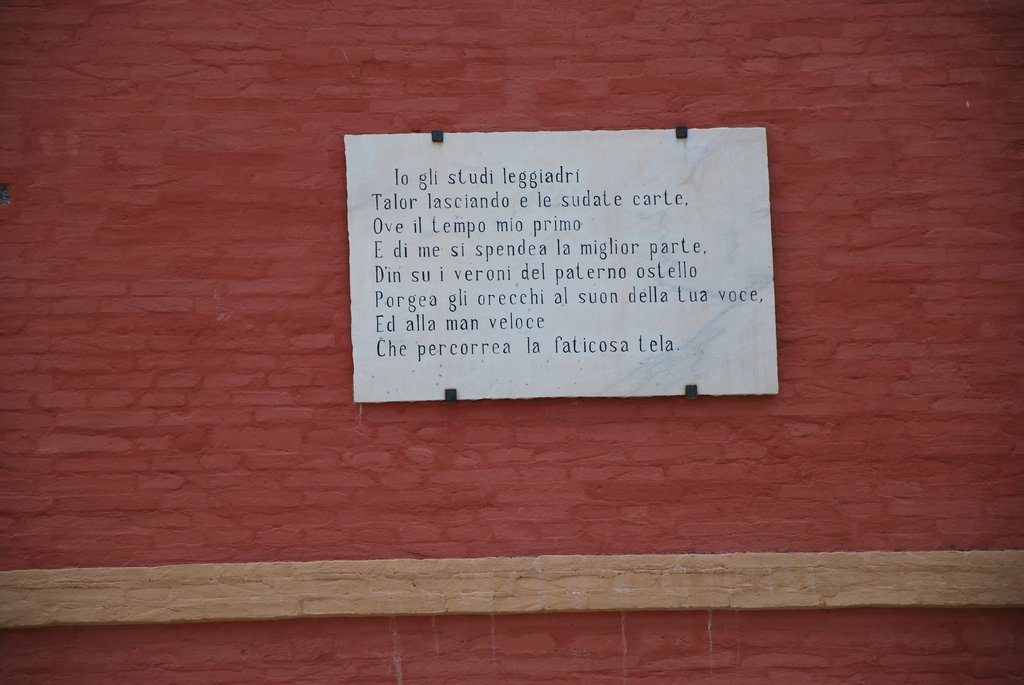 Io gli studi leggiadri
Talor lasciando e le sudate carte,
Ove il tempo mio primo
E di me si spendea la miglior parte,
D'in su i veroni del paterno ostello
Porgea gli orecchi al suon della tua voce,
Ed alla man veloce
Che percorrea la faticosa tela.